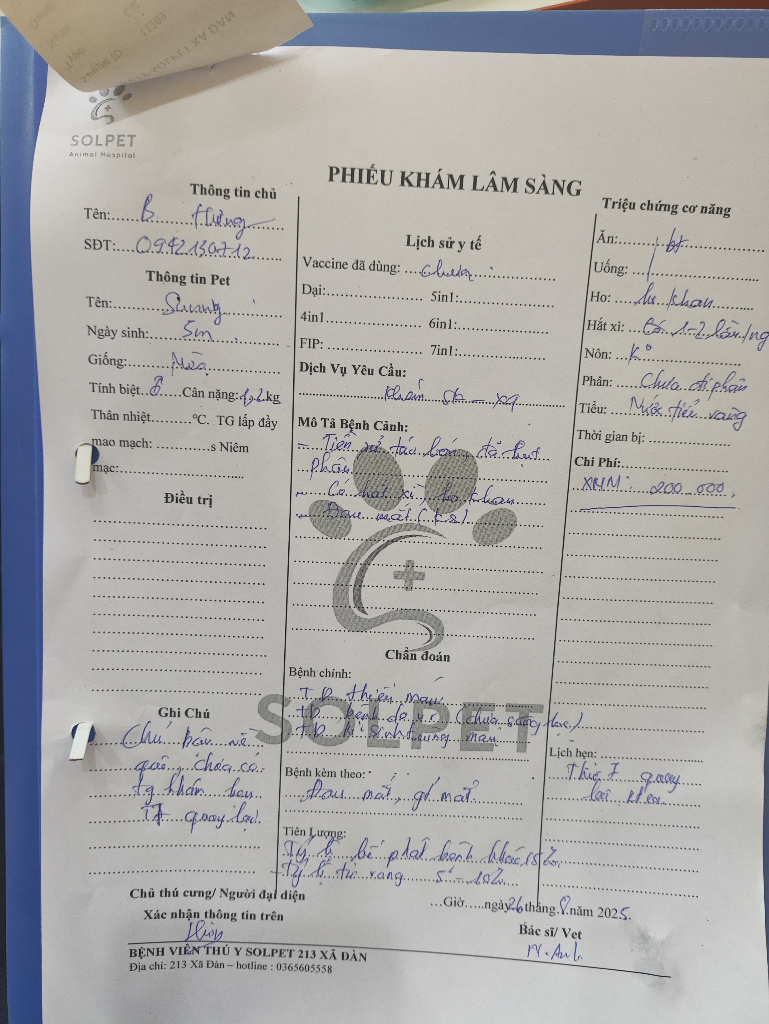 SOLPET
Animal Hospital
PHIẾU KHÁM LÂM SÀNG
Thông tin chủ
Tên: B. Hưng
SĐT: 0942130712
Thông tin Pet
Tên:
Ngày sinh: 5m
Giống: Mèo
Tính biệt ♂ Cân nặng: 1,2 kg
Thân nhiệt.........°C. TG lấp đầy
mao mạch: ............s Niêm
mạc:
Điều trị
Ghi Chú
Chú bận về
quê, chưa có
tg khám
T7 quay lại
Lịch sử y tế
Vaccine đã dùng: chưa
Dại: 5in1:
4in1 6in1:
FIP: 7in1:
Dịch Vụ Yêu Cầu:
Khám
Mô Tả Bệnh Cảnh:
- Tiền sử táo bón, đã thụt
phân
- Có hắt xì, ho khan
- Đau mắt
Chẩn đoán
SOLPET
Bệnh chính:
TD thiếu máu
TD bệnh
TD kí sinh trùng máu
Bệnh kèm theo:
Đau mắt, gỉ mắt
Tiên Lượng:
Tỷ lệ bé phát bệnh khác 15%
Tỷ lệ tử vong 5 - 10%
Triệu chứng cơ năng
Ăn: bt
Uống:
Ho: ho khan
Hắt xì: Có 1-2 lần/ng
Nôn: K°
Phân: Chưa đi phân
Tiểu: Nước tiểu vàng
Thời gian bị:
Chi Phí:
XNM: 200.000.
Lịch hẹn:
Thứ 7 quay
lại
Chủ thú cưng/ Người đại diện
Xác nhận thông tin trên
...Giờ.....ngày 26 tháng 8 năm 2025.
Bác sĩ/ Vet
BỆNH VIỆN THÚ Y SOLPET 213 XÃ ĐÀN
Địa chỉ: 213 Xã Đàn – hotline : 0365605558